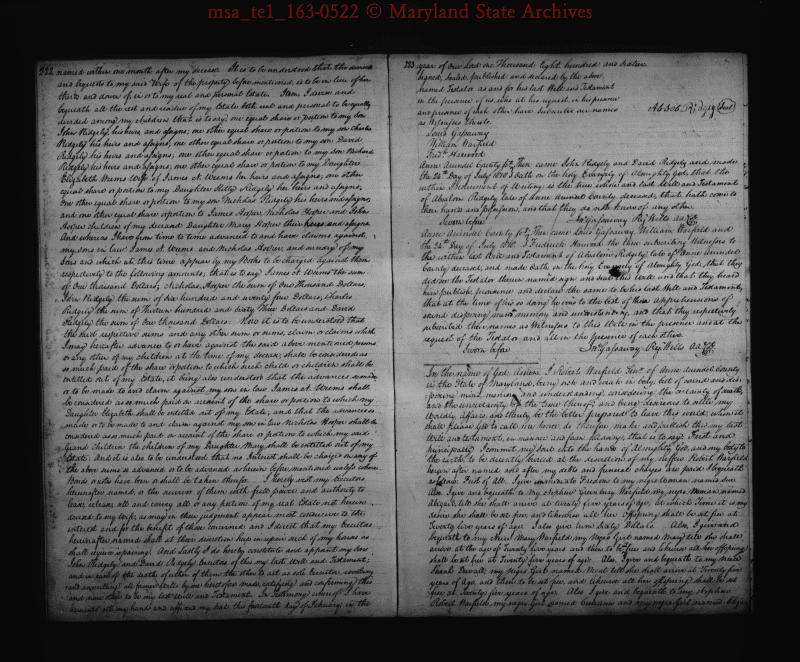 msa_te1_163-0522 © Maryland State Archives
222 named within one month after my decease. It is to be understood that the devise
and bequests to my said Wife of the property before mentioned, is to be in lieu of her
thirds and dower of in or to my real and personal Estate. Item I devise and
bequeath all the rest and residue of my Estate both real and personal to be equally
divided among my children that is to say, one equal share or portion to my son
John Ridgely, his heirs and assigns, one other equal share or portion to my son Charles
Ridgely his heirs and assigns, one other equal share or portion to my son David
Ridgely his heirs and assigns, one other equal share or portion to my son Richard
Ridgely his heirs and assigns, one other equal share or portion to my Daughter
Elizabeth Wems Wife of James N. Weems her heirs and assigns, one other
equal share or portion to my Daughter Kitty Ridgely her heirs and assigns,
One other equal share or portion to my son Nicholas Ridgely his heirs and assigns,
and one other equal share or portion to James Hopper Nicholas Hopper and John
Hopper children of my deceased Daughter Mary Hopper their heirs and assigns.
And whereas I have from time to time advanced to and have claims against
my sons in law James N. Weems and Nicholas Hopper, and on any of my
Sons and which at this time appear by my Books to be charged against them
respectively to the following amounts, that is to say James N. Weems the sum
of One thousand Dollars, Nicholas Hopper the sum of One Thousand Dollars,
John Ridgely the sum of six hundred and seventy four Dollars, Charles
Ridgely the sum of thirteen hundred and sixty three Dollars and David
Ridgely the sum of One thousand Dollars. Now it is to be understood that
the said respective sums and any other sum or sums, claim or claims which
I may hereafter advance to or have against the said above mentioned persons
or any other of my children at the time of my decease, shall be considered as
so much part of the share or portion to which such child or children shall be
entitled out of my Estate, it being also understood that the advances made
or to be made to and claim against my son in law James N. Weems shall
be considered as so much paid on account of the share or portion to which my
Daughter Elizabeth shall be entitled out of my Estate, and that the advances
made or to be made to and claim against my son in law Nicholas Hopper shall be
considered as so much paid on account of the share or portion to which my said
Grand children the children of my Daughter Mary shall be entitled out of my
Estate. And it is also to be understood that no Interest shall be charged on any of
the above sums so advanced or to be advanced as herein before mentioned except where
Bonds or notes have been or shall be taken therefor. I hereby vest my Executors
hereinafter named, or the survivor of them with full power and authority to
lease, release, sell and convey all or any portion of my real Estate not herein
devised to my wife, as may in their judgement appear most conducive to the
interest and for the benefit of those concerned and I direct that my Executors
hereinafter named shall at their discretion keep in repair such of my houses as
shall require repairing. And lastly I do hereby constitute and appoint my Sons
John Ridgely and David Ridgely Executors of this my last Will and Testament,
and in case of the death of either of them the other to act as sole Executor, revoking
and annulling all former wills by me heretofore made, ratifying and confirming this
and none other to be my last Will and Testament. In Testimony whereof I have
hereunto set my hand and affixed my seal this fourteenth day of February in the
223 year of Our Lord one Thousand Eight hundred and sixteen
Signed, Sealed, published and declared by the above
named Testator as and for his last Will and Testament
in the presence of us who at his request, in his presence
and presence of each other have subscribed our names
as Witnesses thereto
Absalom Ridgely (Seal)
Louis Gassaway
William Warfield
Fredk. Harwood
Anne Arundel County sct. Then came John Ridgely and David Ridgely and made
the 24th Day of July 1818 Oath on the holy Evangely of Almighty God, that the
within Instrument of Writing is the true whole and last Will and Testament
of Absalom Ridgely late of Anne Arundel County deceased, that hath come to
their hands and possession, and that they do not know of any other.
Sworn before Jno. Gassaway Reg. Wills AA Cty
Anne Arundel County sct. Then came Louis Gassaway, William Warfield and
the 24th Day of July 1818. Frederick Harwood the three subscribing Witnesses to
the within last Will and Testament of Absalom Ridgely, late of Anne Arundel
County deceased, and made oath on the holy Evangely of Almighty God, that they
did see the Testator therein named sign and seal this Will and that they heard
him publish, pronounce and declare the same to be his last Will and Testament,
that at the time of his so doing he was to the best of their apprehensions of
sound disposing mind memory and understanding, and that they respectively
subscribed their names as Witnesses to this Will in the presence and at the
request of the Testator, and all in the presence of each other.
Sworn before Jno. Gassaway Reg. Wills AA Cty
In the name of God Amen. I Robert Warfield Senr. of Anne Arundel County
in the State of Maryland, being sick and weak in body, but of sound and dis-
posing mind memory and understanding, considering the certainty of death,
and the uncertainty of the time thereof, and being desirous to settle my
Worldly affairs, and thereby be the better prepared to leave this world, when it
shall please God to call me hence, do therefore, make and publish this my last
Will and testament, in manner and form following, that is to say. First and
principally I commit my Soul into the hands of Almighty God, and my body to
the earth to be decently buried at the discretion of my Nephew Robert Warfield
herein after named and after my debts and funeral charges are paid I bequeath
as follows. First of all, I give immediate Freedom to my negro Woman named Sue
Also I give and bequeath to my Nephew Greenbury Warfield, my negro Woman named
Abigail, till she shall arrive at twenty five years of age, at which time it is my
desire she shall be set free, and likewise all her Offspring shall be set free at
Twenty five years of age. I also give him Sixty Dollars. Also, I give and
bequeath to my Niece Mary Warfield, my Negro Girl named Mary till she shall
arrive at the age of Twenty two years and then to be free and likewise all her offspring
shall be set free at Twenty five years of age. Also, I give and bequeath to my Niece
Sarah Duvall, my Negro Girl named till she shall arrive at Twenty five
years of age, and then to be set free, and likewise all her offspring shall be set
free at Twenty five years of age. Also I give and bequeath to my Nephew
Robert Warfield, my negro Girl named and my negro Girl named